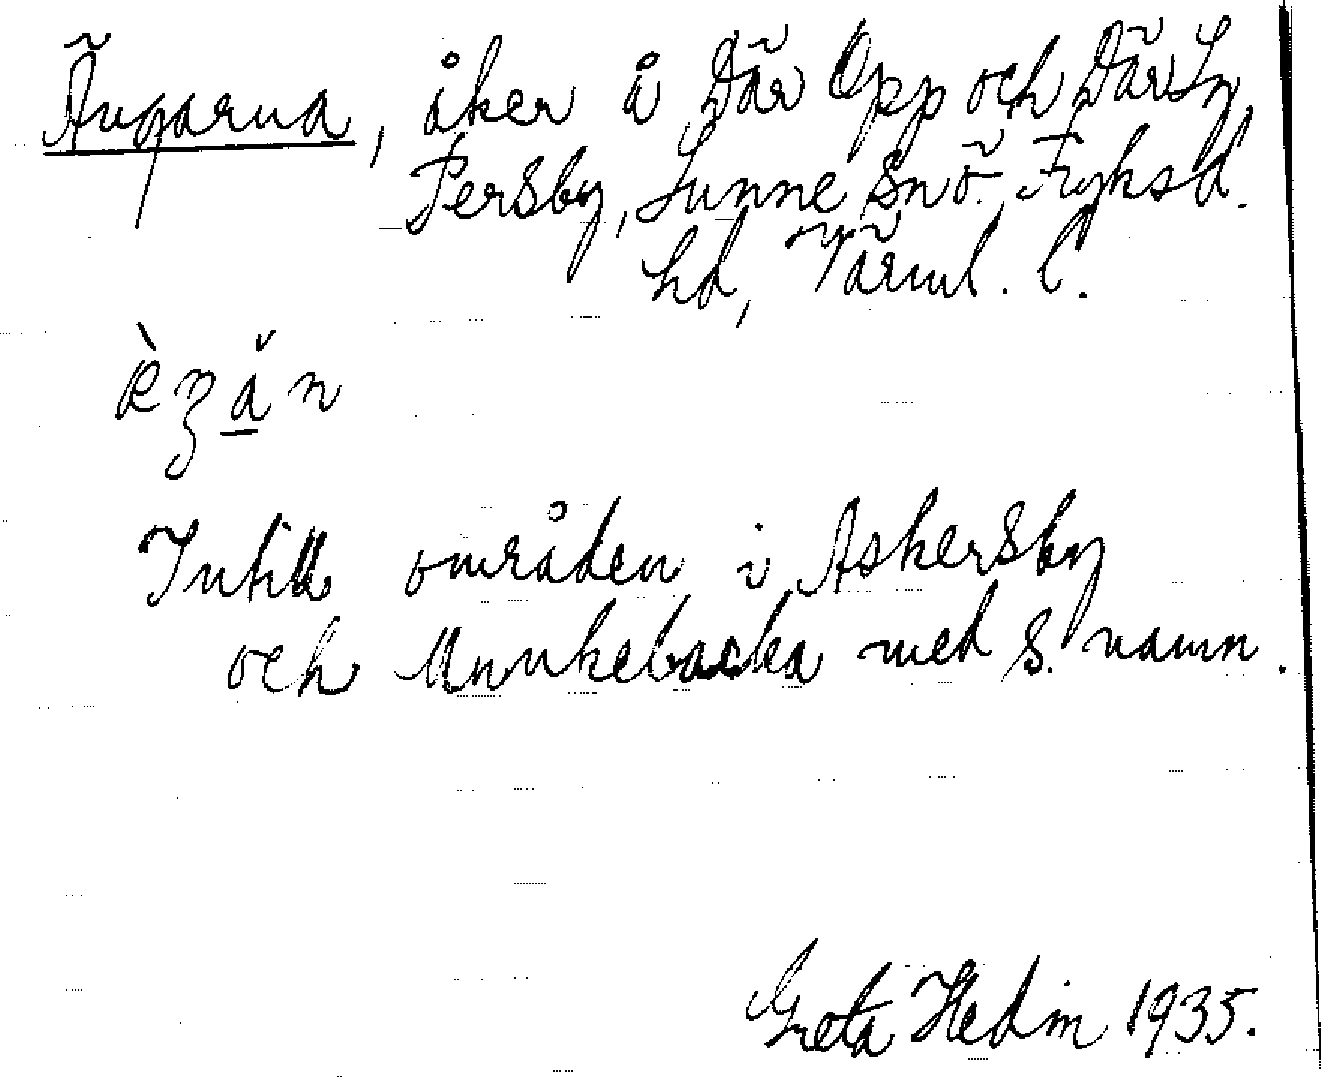 Ängarna, åker å Där Opp och Där Sy,
Persby, Sunne snö Fryksd.
hd, Värml. l.
Intill områden i Askersby
och Munkebacka med s. namn.
Greta Hedin 1935.